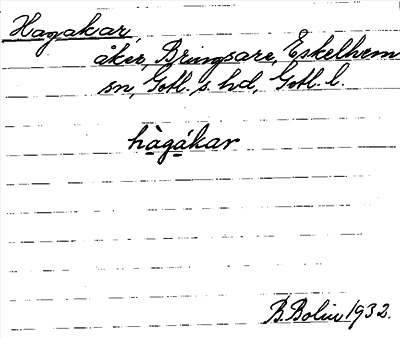 Hagakrar,
åker, Bringsare, Eskelhem
sn, Gotl. s. hd, Gotl. l.
hàgákar
B. Bolin 1932.